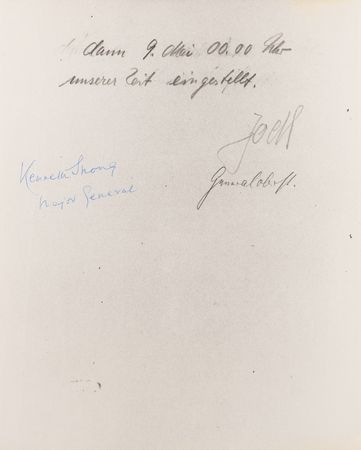 dann 9. Mai 00.00 Uhr
unserer Zeit eingestellt.
Jodl
Generaloberst.
Kenneth Strong
Major General